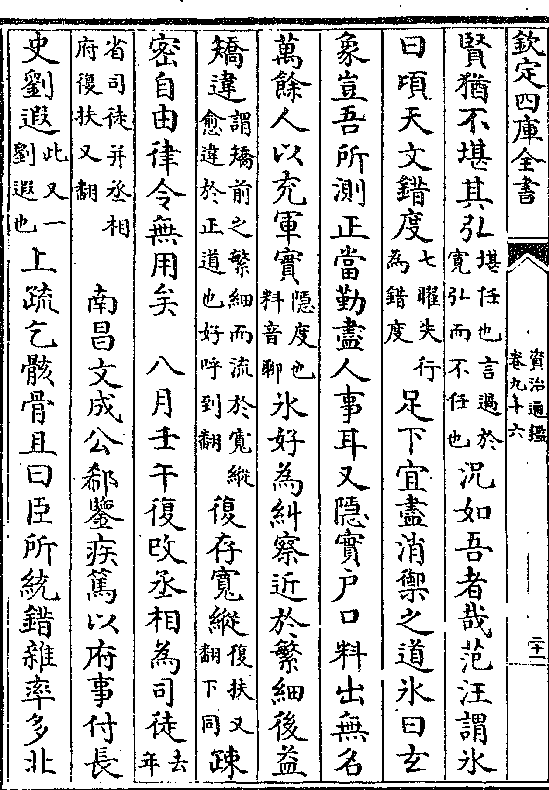 欽定四庫全書
資治通鑑
卷九十六
二十一
賢猶不堪其弘堪任也言過於寛弘而不任也況如吾者哉范汪謂氷
曰頃天文錯度七曜失行為錯度足下宜盡消禦之道氷曰玄
象豈吾所測正當勤盡人事耳又隱實戶口料出無名
萬餘人以充軍實隱度也料音聊氷好為糾察近於繁細後益
矯違謂矯前之繁細而流於寛縱愈違於正道也好呼到翻復存寛縱復扶又翻下同疎
密自由律令無用矣 八月壬午復改丞相為司徒去年
省司徒并丞相府復扶又翻 南昌文成公郗鑒疾篤以府事付長
史劉遐此又一劉遐也上疏乞骸骨且曰臣所統錯雜率多北